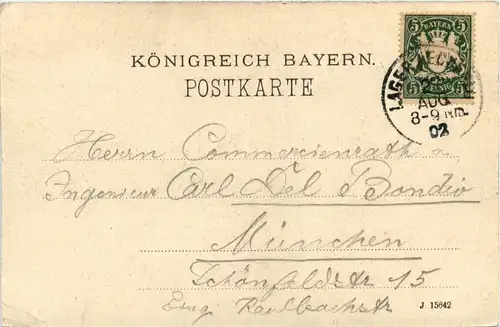 5 BAYERN 5
PFENNIG
LAGER LECHFELD
AUG
8-9 Nm.
02
KÖNIGREICH BAYERN.
POSTKARTE
Herrn Commercienrath u.
Ingenieur Carl Del Bondio
München
Schönfeldstr 15
Eing Kaulbachstr
J 15642